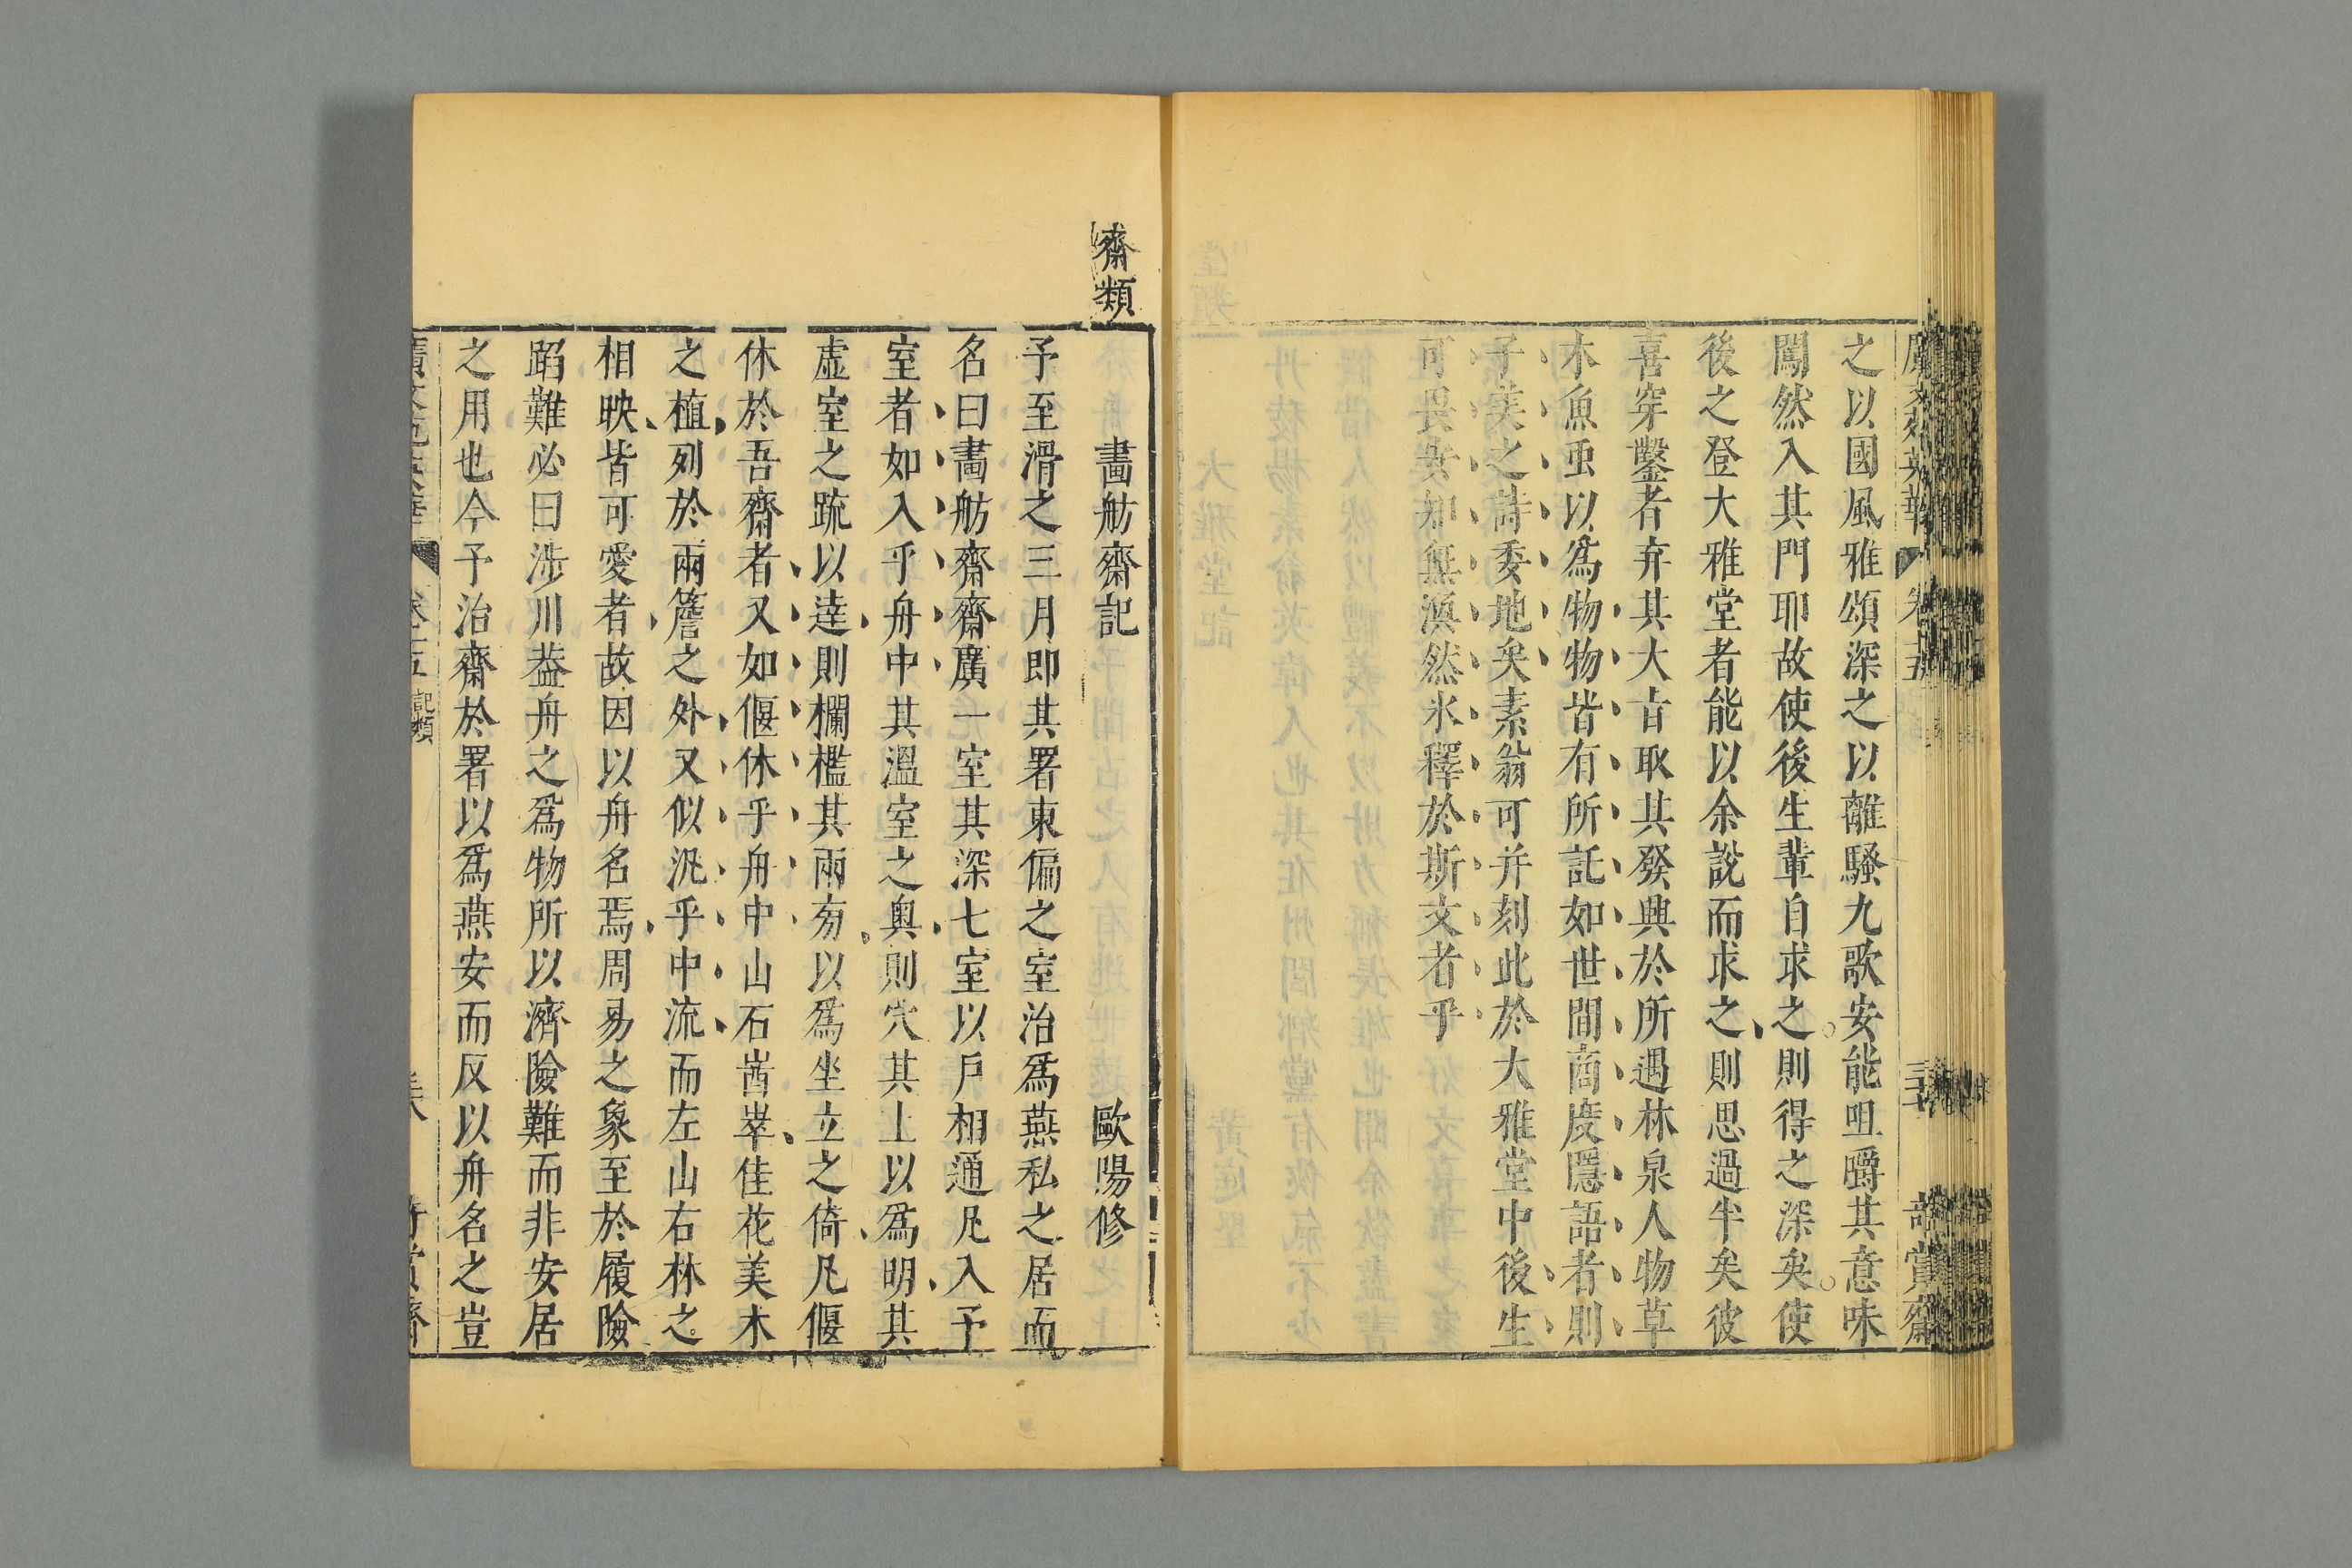 之以國風雅頌深之以離騷九歌安能咀嚼其意味
闖然入其門耶故使後生輩自求之則得之深矣使
後之登大雅堂者能以余說而求之則思過半矣彼
喜穿鑿者弃其大㫖取其發興於所遇林泉人物草
木魚虫以爲物物皆有所託如世間商度隱語者則
子美之詩委地矣素翁可并刻此於大雅堂中後生
可畏安知無渙然氷釋於斯文者乎
齋類
畫舫齋記 歐陽修
予至滑之三月即其署東偏之室治爲燕私之居而
名曰畫舫齋齋廣一室其深七室以戶相通凡入予
室者如入乎舟中其溫室之奧則穴其上以爲明其
虛室之疏以達則欄檻其兩旁以爲坐立之倚凡偃
休於吾齋者又如偃休乎舟中山石崷崒佳花美木
之植列於兩簷之外又似汎乎中流而左山右林之
相映皆可愛者故因以舟名焉周易之象至於履險
蹈難必曰涉川葢舟之爲物所以濟險難而非安居
之用也今予治齋於署以爲燕安而反以舟名之豈